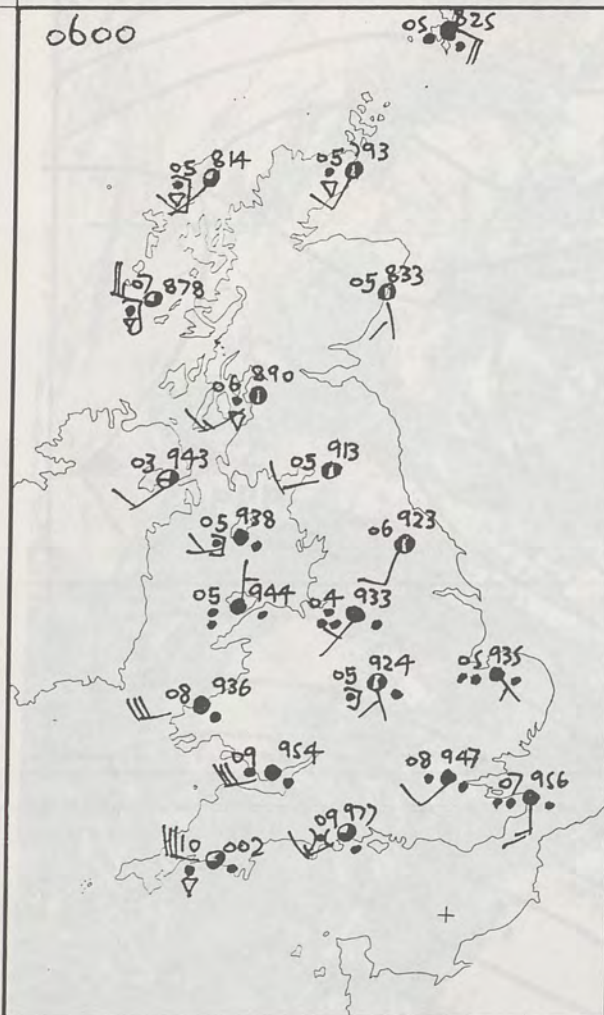 0600
05 825
05 814
05 793
878
05 833
06 890
03 943
05 913
05 938
06 923
05 944
04 933
05 924
05 935
08 936
09 954
08 947
07 956
09 977
10 002